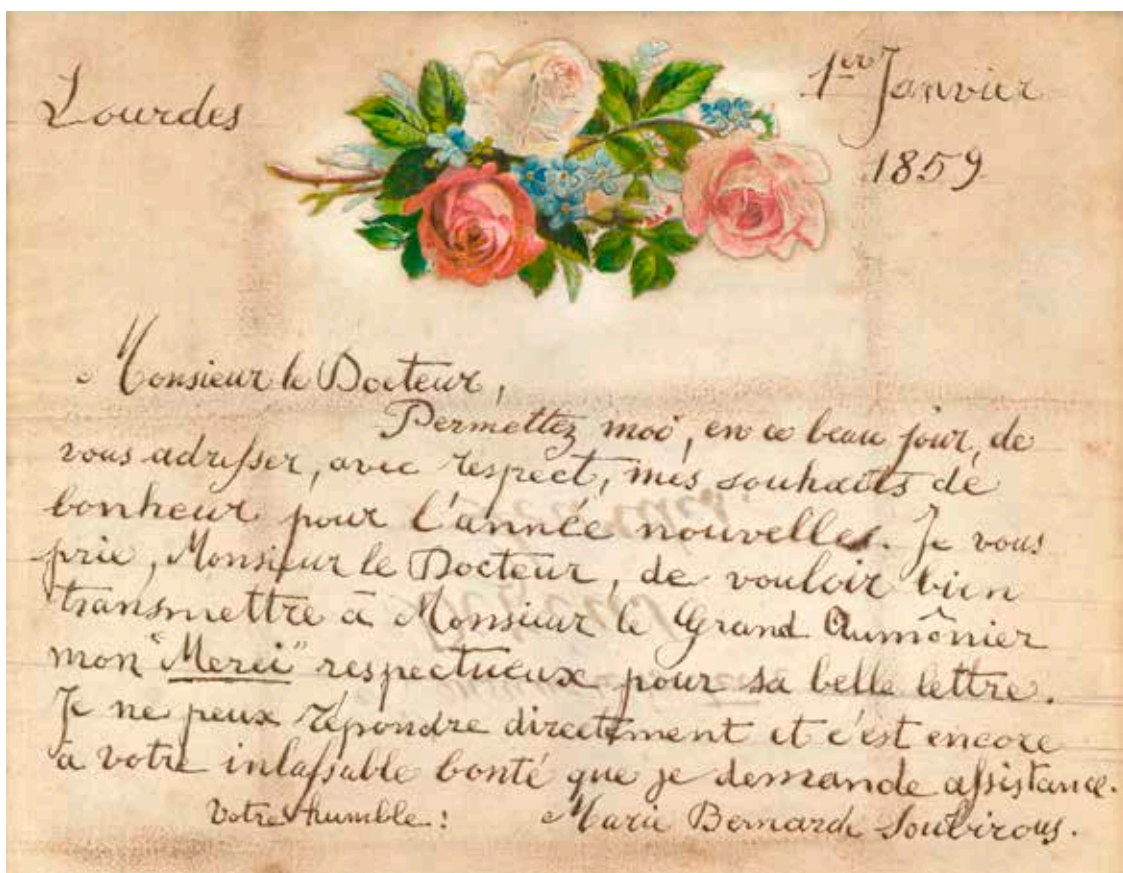 Lourdes
1er Janvier
1859
Monsieur le Docteur,
Permettez moi, en ce beau jour, de
vous adresser, avec respect, mes souhaits de
bonheur pour l'année nouvelles. Je vous
prie, Monsieur le Docteur, de vouloir bien
transmettre à Monsieur le Grand Aumônier
mon "Merci" respectueux pour sa belle lettre.
Je ne peux répondre directement et c'est encore
a votre inlassable bonté que je demande assistance.
Votre humble : Marie Bernarde Soubirous.